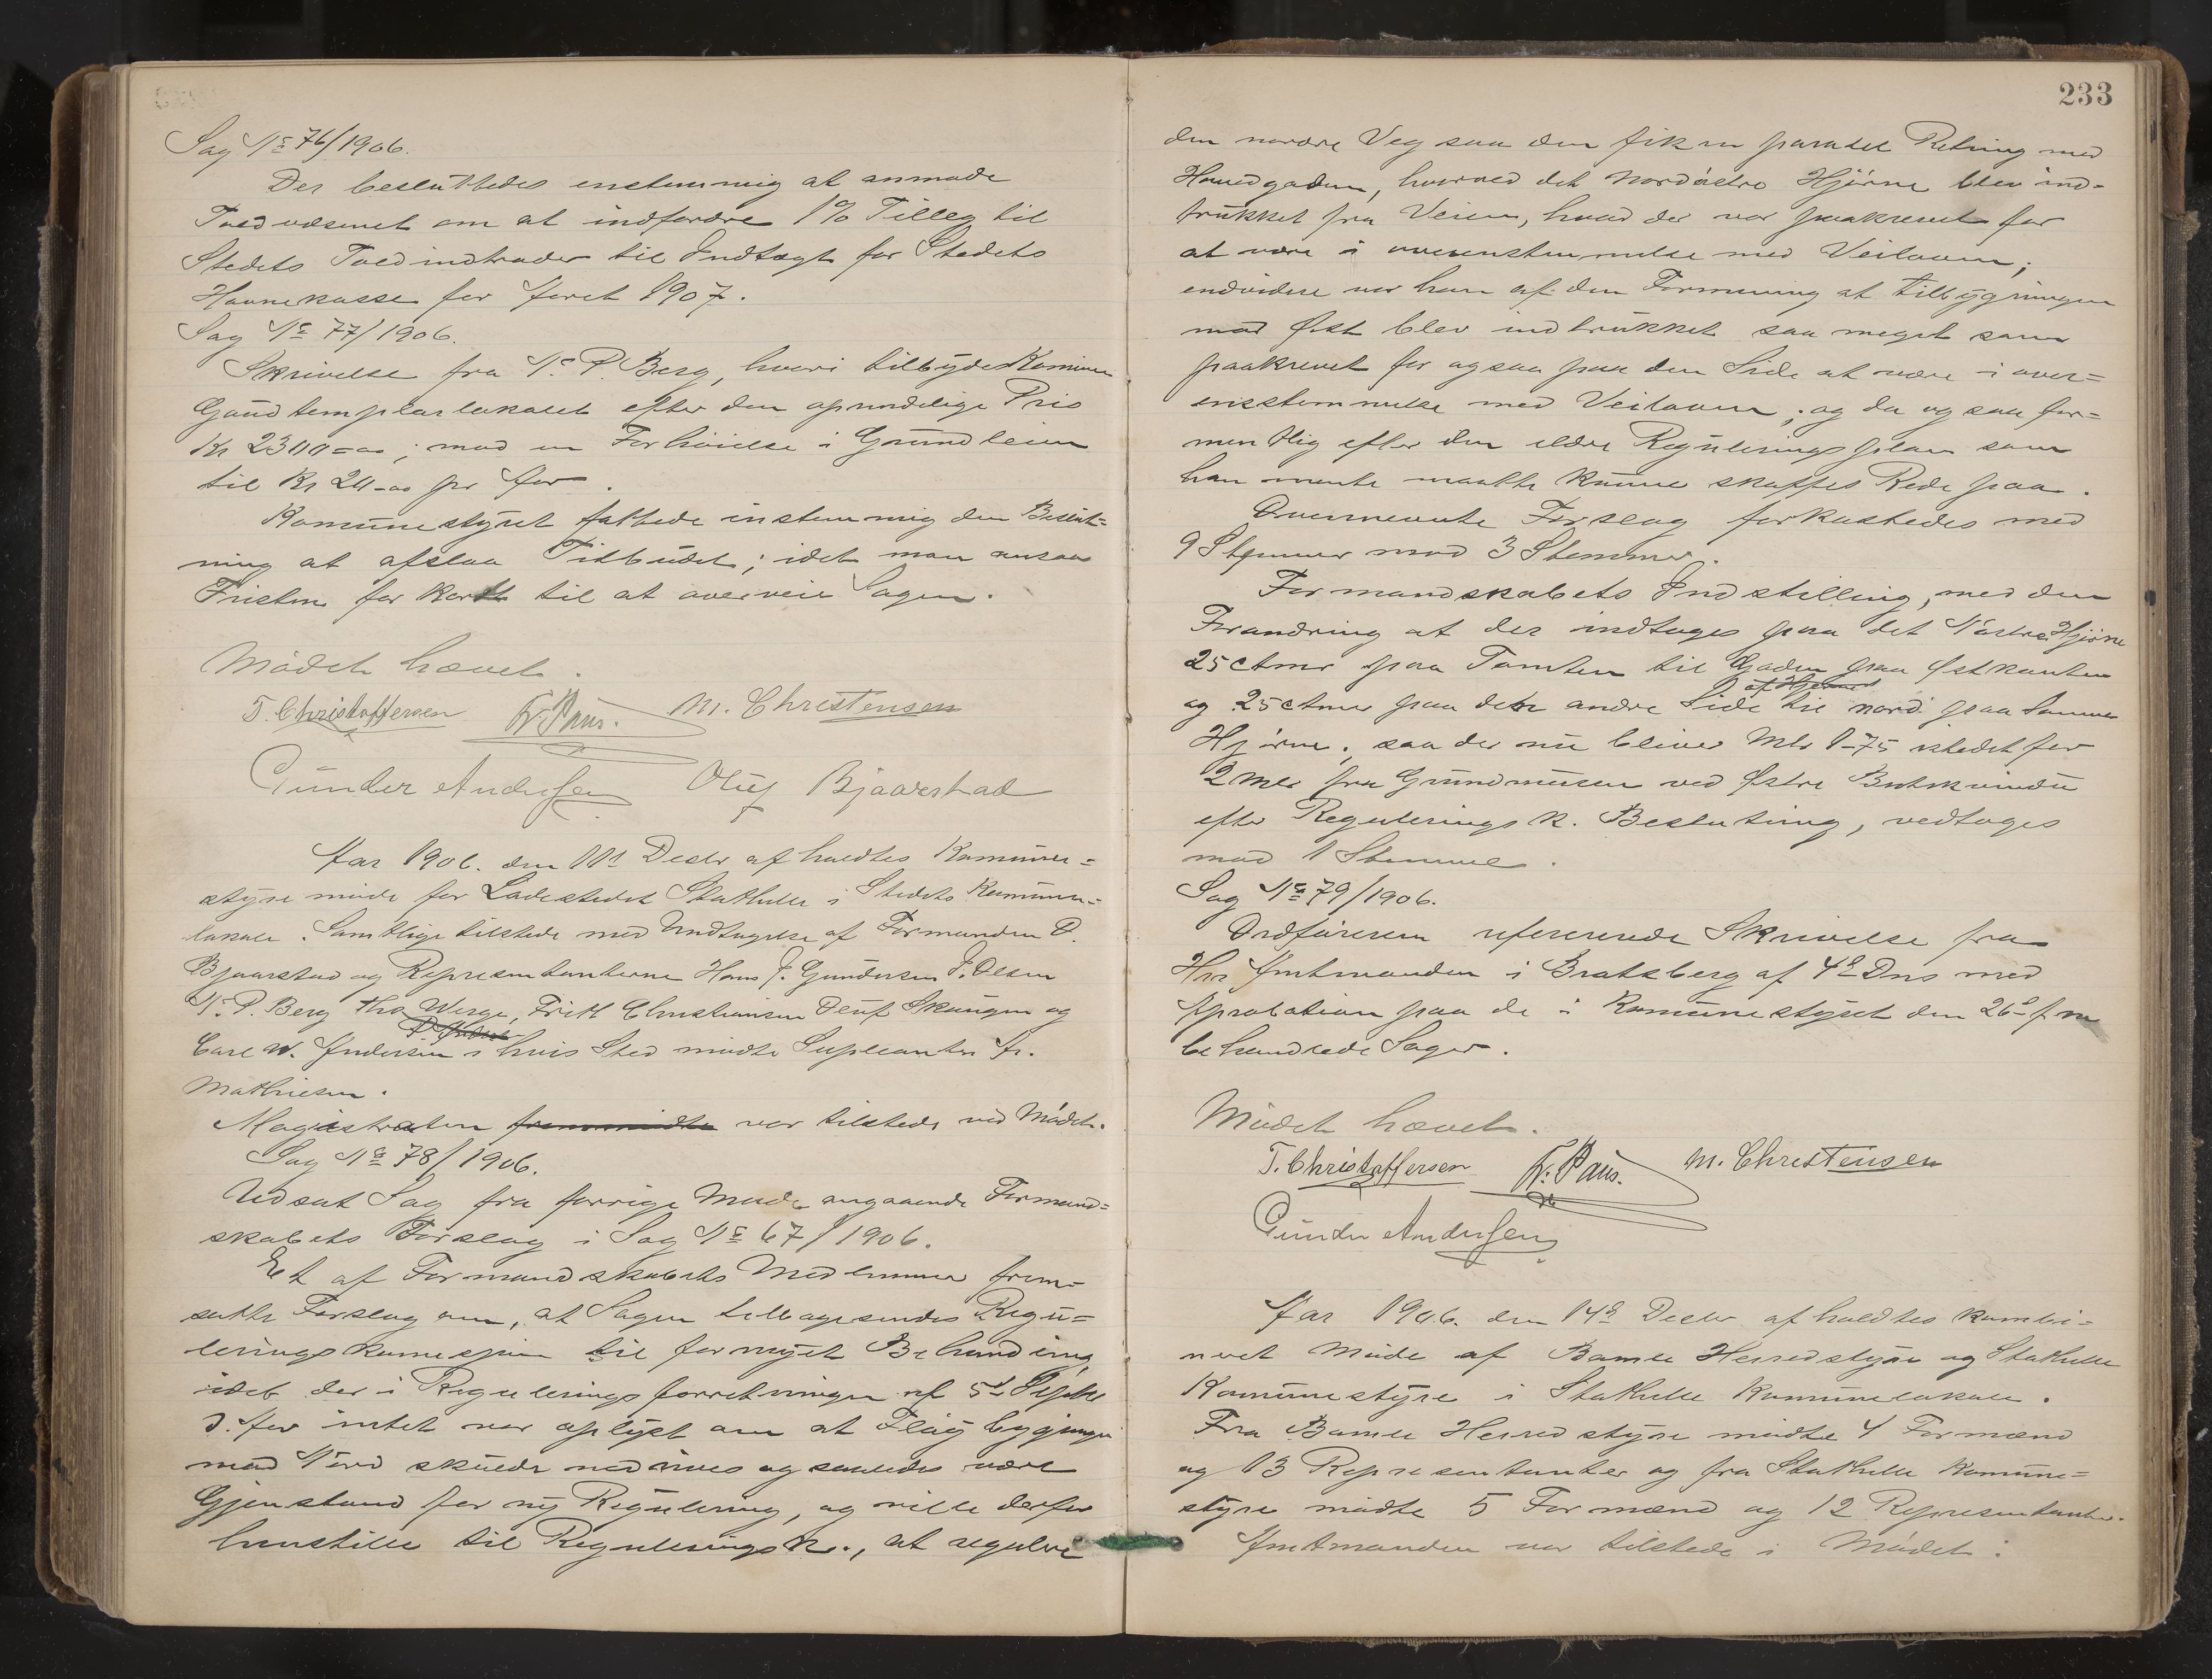 Sag No 76/1906.
Der besluttedes enstemmig at anmode
Toldvæsenet om at indfordre 1% Tillæg til
Stedets Toldindtrader til Indtægt for Stedets
Havnekasse for Aaret 1907.
Sag No 77/1906.
Skrivelse fra N. P. Berg, hvori tilbydes Komunen
Goodtemplarlokalet efter den oprindelige Pris
Kr 2300-00; mod en Forhøielse i Grundleien
til Kr 20-00 pr Aar.
Komunestyret fattede enstemmig den Beslut=
ning at afslaa Tilbudet; idet man ansaa
Fristen for kort til at overveie Sagen.
Mødet hævet.
T. Christoffersen W. Paus. M. Christensen
Gunder Andersen Oluf Bjaarstad
Aar 1906. den 10d Decbr afholdtes Komune=
styremøde for Ladestedet Stathelle i Stedets Komune=
lokale. Samtlige tilstede med Undtagelse af Formanden O.
Bjaarstad og Repræsentanterne Hans J. Gundersen J. Olsen
N. P. Berg Ths Werge, Fritt Christiansen Oluf Skaugen og
Carl W. Andersen i hvis Sted mødte Supleanten Fr.
Mathiesen.
Magistraten fremmødte var tilstede ved Mødet.
Sag No 78/1906.
Udsat Sag fra forrige Møde angaaende Formand=
skabets Forslag i Sag No 67/1906.
Et af Formandskabets Medlemmer frem=
satte Forslag om, at Sagen tilbagesendes Regu=
leringskomisjon til fornyet Behandling,
idet der i Reguleringsforretningen af 5d Septbr
d. Aar intet var oplyst om at Fløibygningen
mod Nord skulde nedrives og saaledes være
Gjenstand for ny Regulering, og vilde derfor
henstille til Regulerings k., at regulere
233
den nordre Veg saa den fik en paralel Retning med
Hovedgaden, hvorved det nordøstre Hjørne blev ind=
trukket fra Veien, hvad der var paakrevet for
at være i overensstemmelse med Veiloven;
endvidere var han af den Formening at tilbygningen
mod Øst blev indtrukket saa meget som
paakrevet for ogsaa paa den Side at være i over=
ensstemmelse med Veiloven; og da ogsaa for=
mentlig efter den ældre Reguleringsplan som
han mente maatte kunne skaffes Rede paa.
Ovennevnte Forslag forkastedes med
9 Stemmer mod 3 Stemmer.
Formandskabets Indstilling, med den
Forandring at der indtages paa det Nordre Hjørne
25 ctmr paa Tomten til Gaden paa Østkanten
af Hjørnet
og 25 ctmr paa den andre Side til nord paa samme
Hjørne, saa der nu bliver Mtr 1-75 istedetfor
2 Mtr fra Grundmuren ved Østre Butikvindu
efter Regulerings k. Beslutning, vedtages
mod 1 Stemme.
Sag No 79/1906.
Ordføreren refererede Skrivelse fra
Hr Amtmanden i Bratsberg af 4d Dns med
Aprobation paa de i Komunestyret den 26d f m
behandlede Sager.
Mødet hævet.
T. Christoffersen W. Paus. M. Christensen
Gunder Andersen
Aar 1906. den 14d Decbr afholdtes kombi=
neret Møde af Bamle Herredstyre og Stathelle
Komunestyre i Stathelle Komunelokale.
Fra Bamle Herredstyre mødte 4 Formænd
og 13 Repræsentanter og fra Stathelle Komune=
styre mødte 5 Formænd og 12 Repræsentanter.
Amtmanden var tilstede i Mødet.